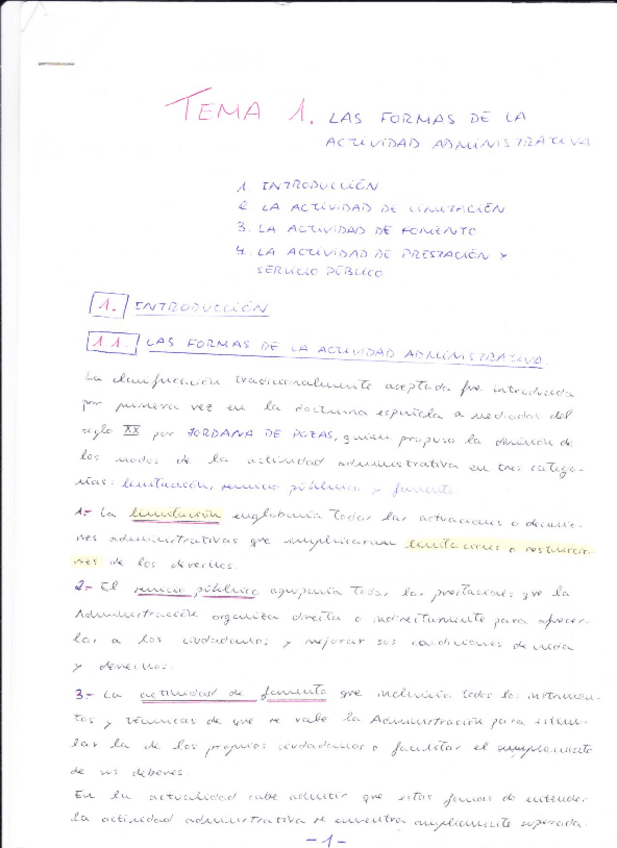 TEMA 1. LAS FORMAS DE LA
ACTIVIDAD ADMINISTRATIVA
1. INTRODUCCIÓN
2 LA ACTIVIDAD DE LIMITACIÓN
3. LA ACTIVIDAD DE FOMENTO
4. LA ACTIVIDAD DE PRESTACIÓN Y
SERVICIO PÚBLICO
1. INTRODUCCIÓN
1.1. LAS FORMAS DE LA ACTIVIDAD ADMINISTRATIVA
La clasificación tradicionalmente aceptada fue introducida
por primera vez en la doctrina española a mediados del
siglo XX por JORDANA DE POZAS, quien propuso la división de
los modos de la actividad administrativa en tres catego-
rías: limitación, servicio público y fomento.
1.- La limitación englobaría todas las actuaciones o decisio-
nes administrativas que implicaran limitaciones o restriccio-
nes de los derechos.
2.- El servicio público agruparía todas las prestaciones que la
Administración organiza directa o indirectamente para ofrecer-
las a los ciudadanos y mejorar sus condiciones de vida
y derechos.
3.- La actividad de fomento que incluiría todos los instrumen-
tos y técnicas de que se vale la Administración para estimu-
lar la de los propios ciudadanos o facilitar el cumplimiento
de sus deberes.
En la actualidad cabe admitir que estas formas de entender
la actividad administrativa se encuentra ampliamente superada.
-1-